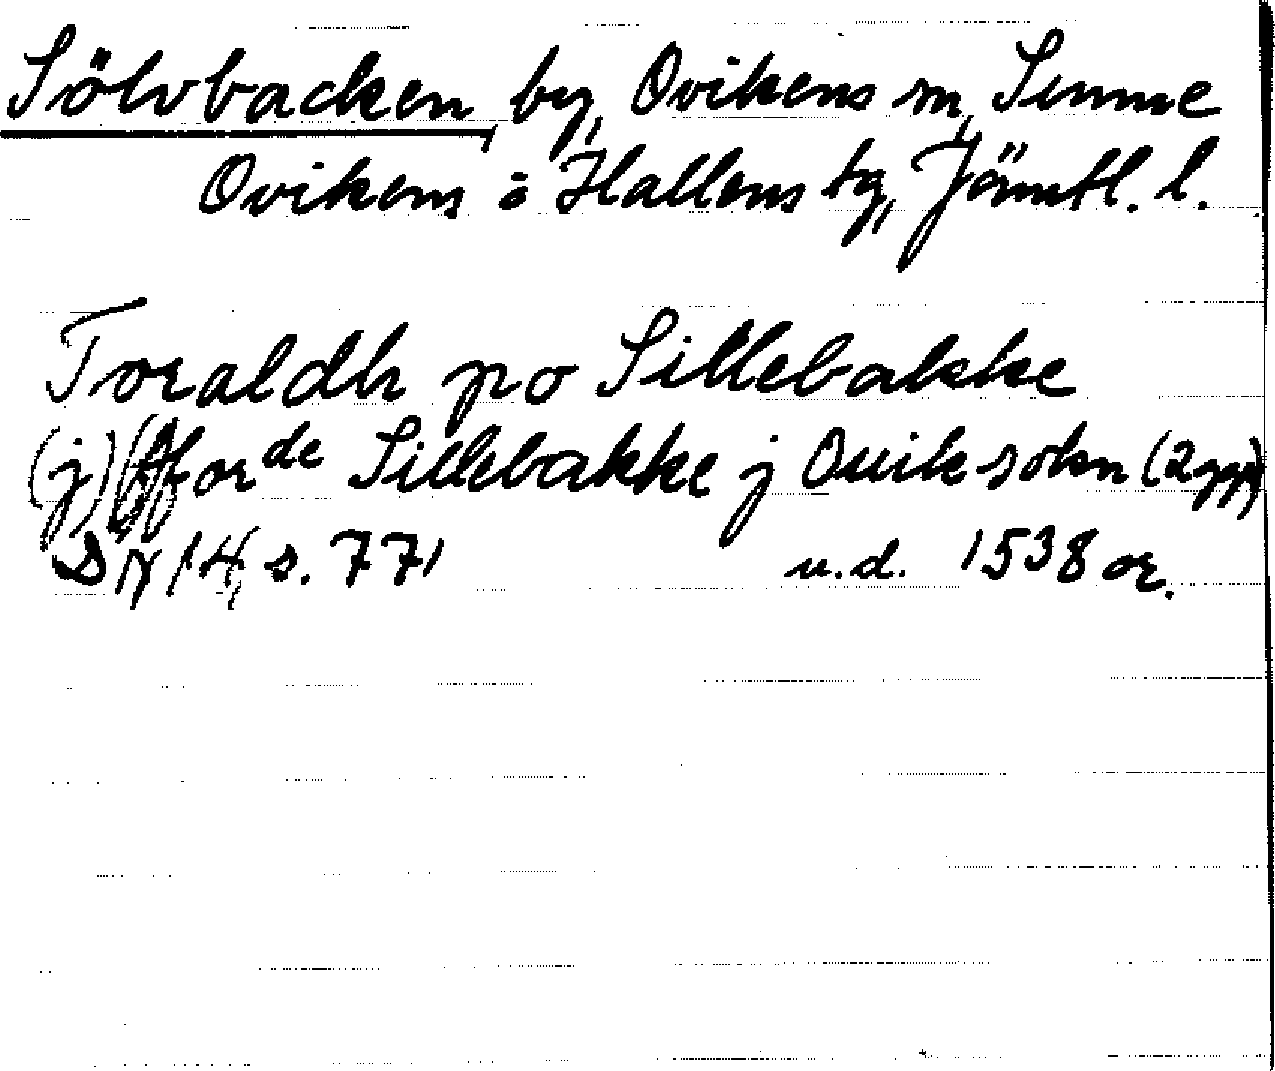 Sölvbacken by, Ovikens sn, Sunne
Ovikens o Hallens tg, Jämtl. l.
Toraldh po Sillebakke
(j) fforde Sillebakke j Ouik sokn (2 ggr)
DN 14 s. 771 u.d. 1538 or.